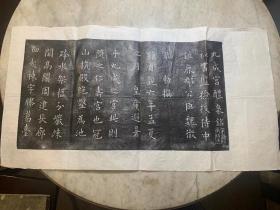 九成宮醴泉銘
秘書監檢校侍中
鉅鹿郡公臣魏徵
奉 勑撰
維貞觀六年孟夏
之月 皇帝避暑
乎九成之宮此則
隨之仁壽宮也冠
山抗殿絕壑為池
跨水架楹分巖竦
闕高閣周建長廊
四起棟宇膠葛臺